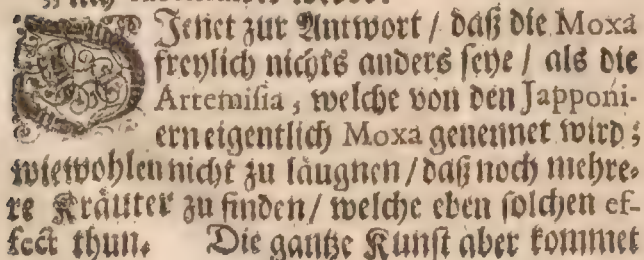 Dienet zur Antwort / daß die Moxa
freylich nichts anders seye / als die
Artemisia, welche von den Japponi-
ern eigentlich Moxa genennet wird;
wiewohlen nicht zu läugnen / daß noch mehre-
re Kräuter zu finden / welche eben solchen ef-
fect thun. Die gantze Kunst aber kommet